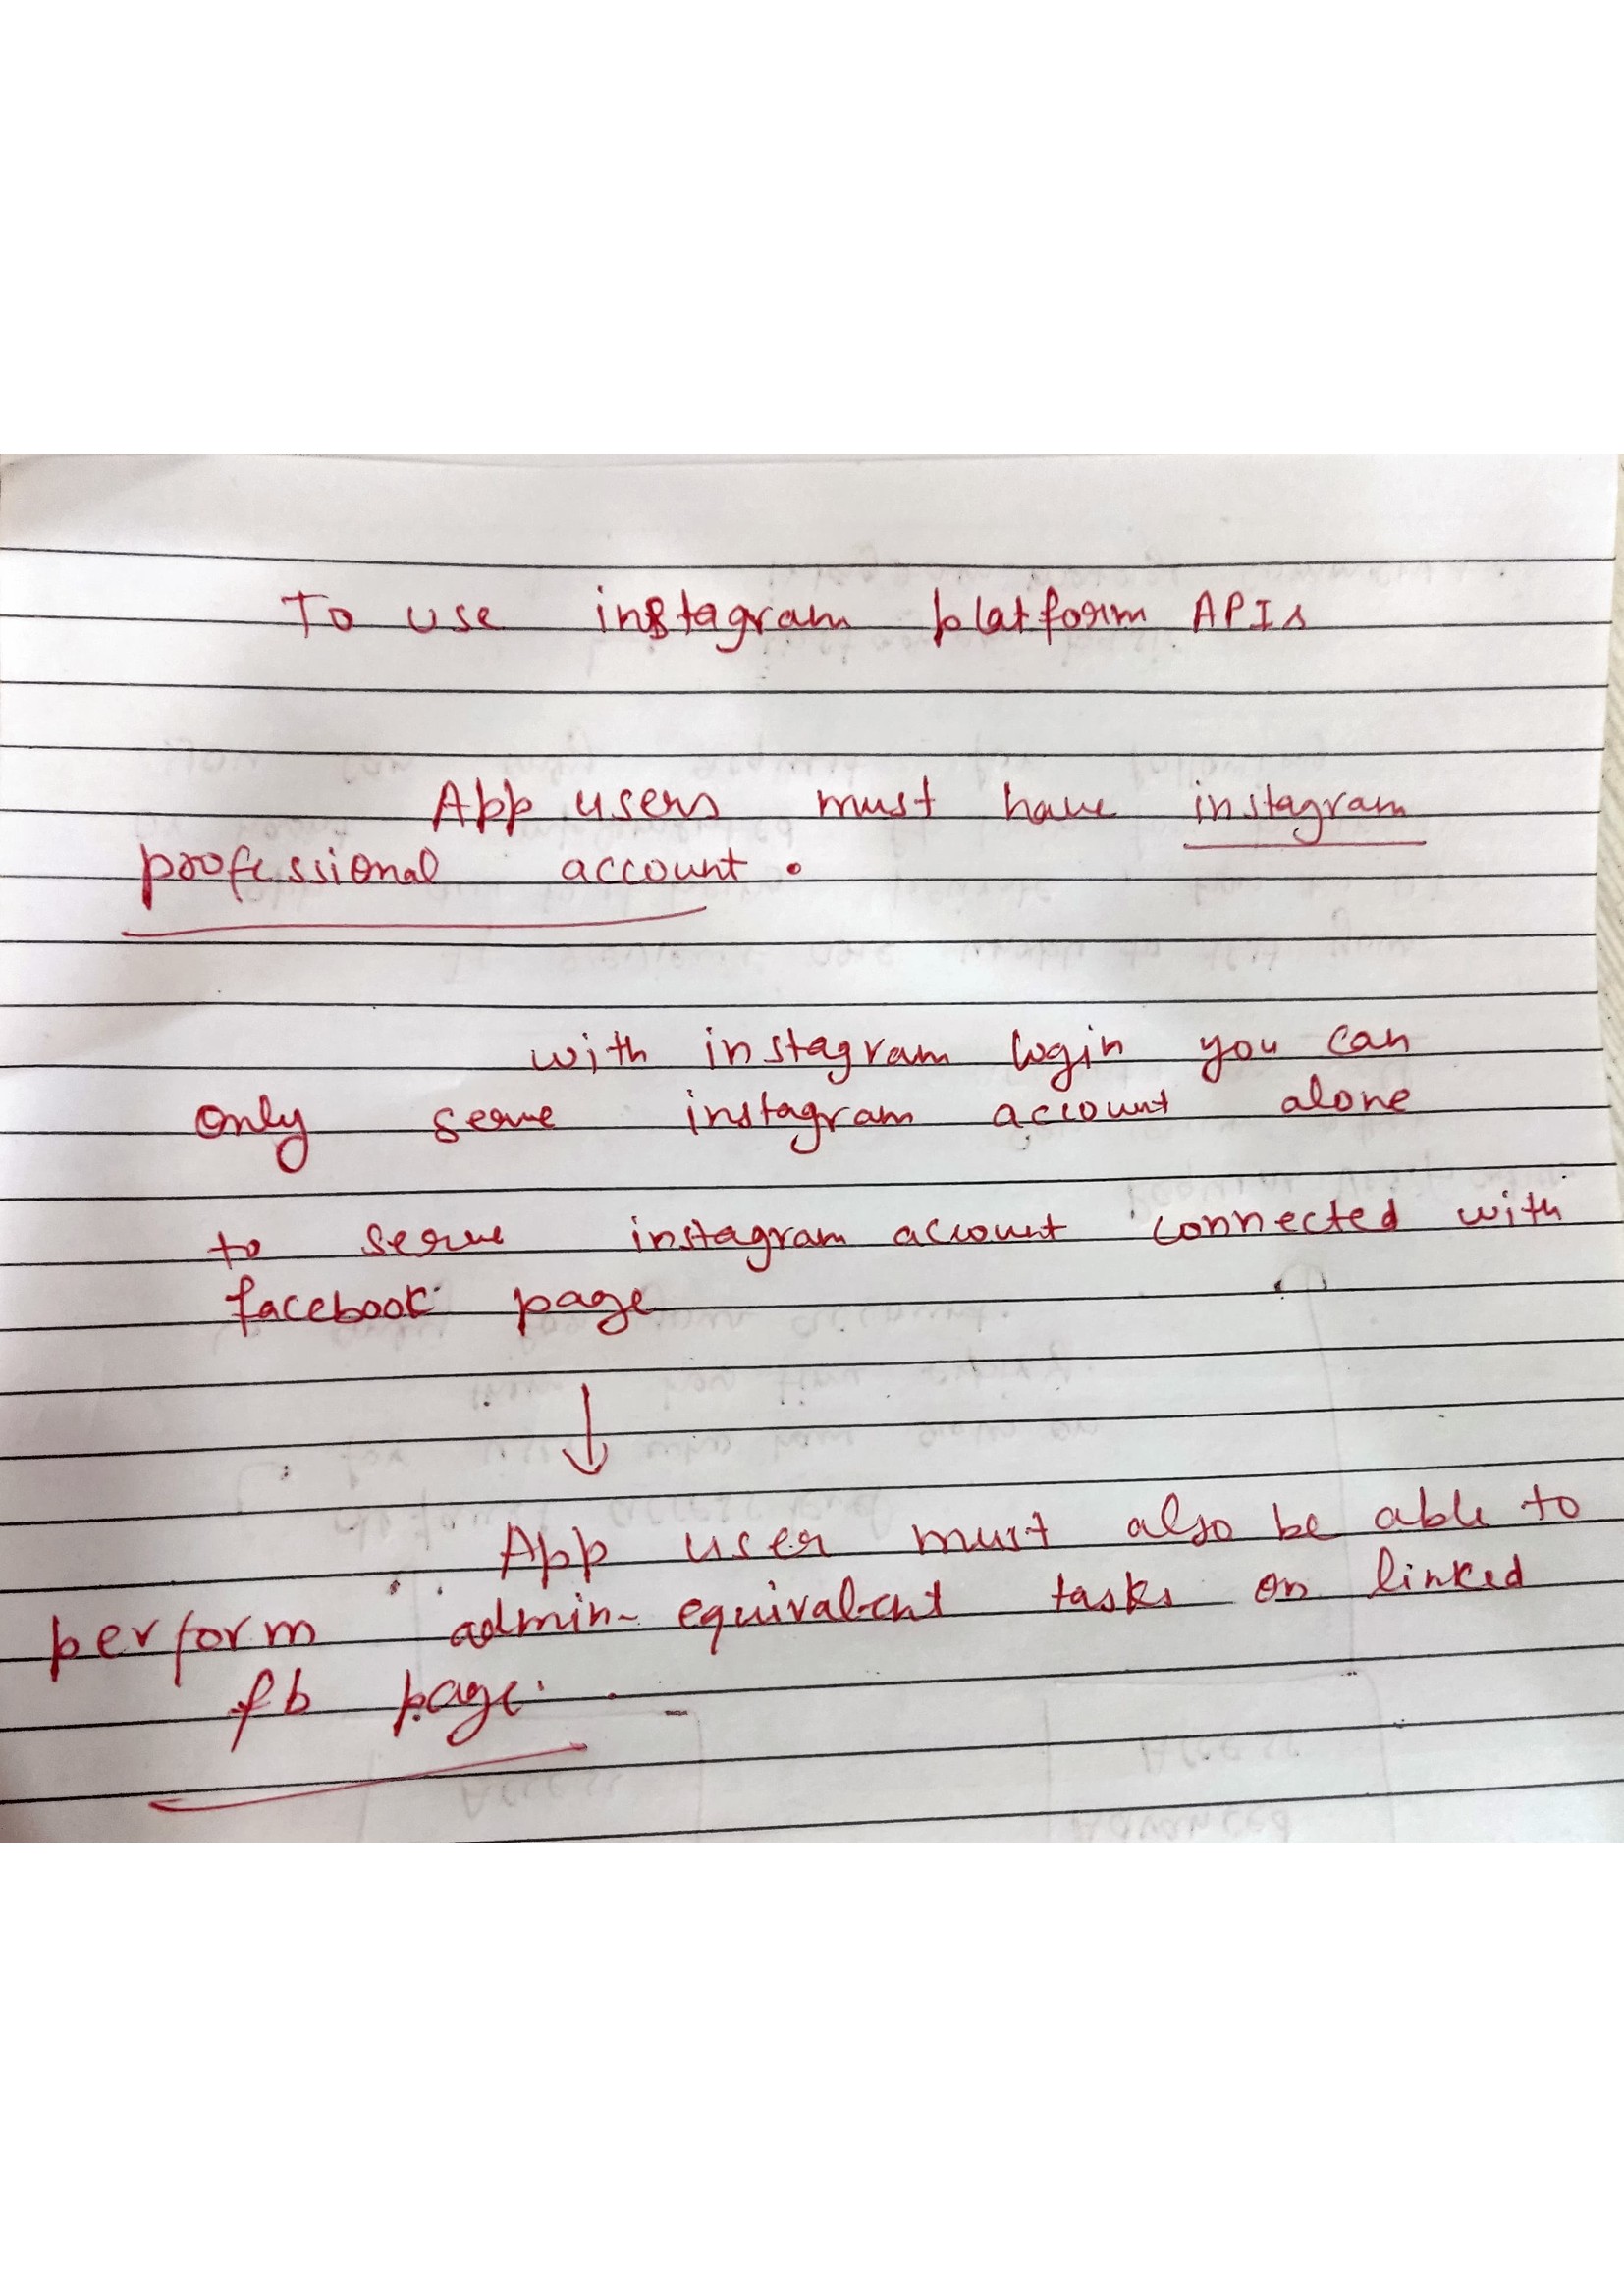 To use instagram platform APIs
App users must have instagram
professional account.
with instagram login you can
only serve instagram account alone
to serve instagram account connected with
facebook page
↓
App user must also be able to
perform admin-equivalent tasks on linked
fb page.